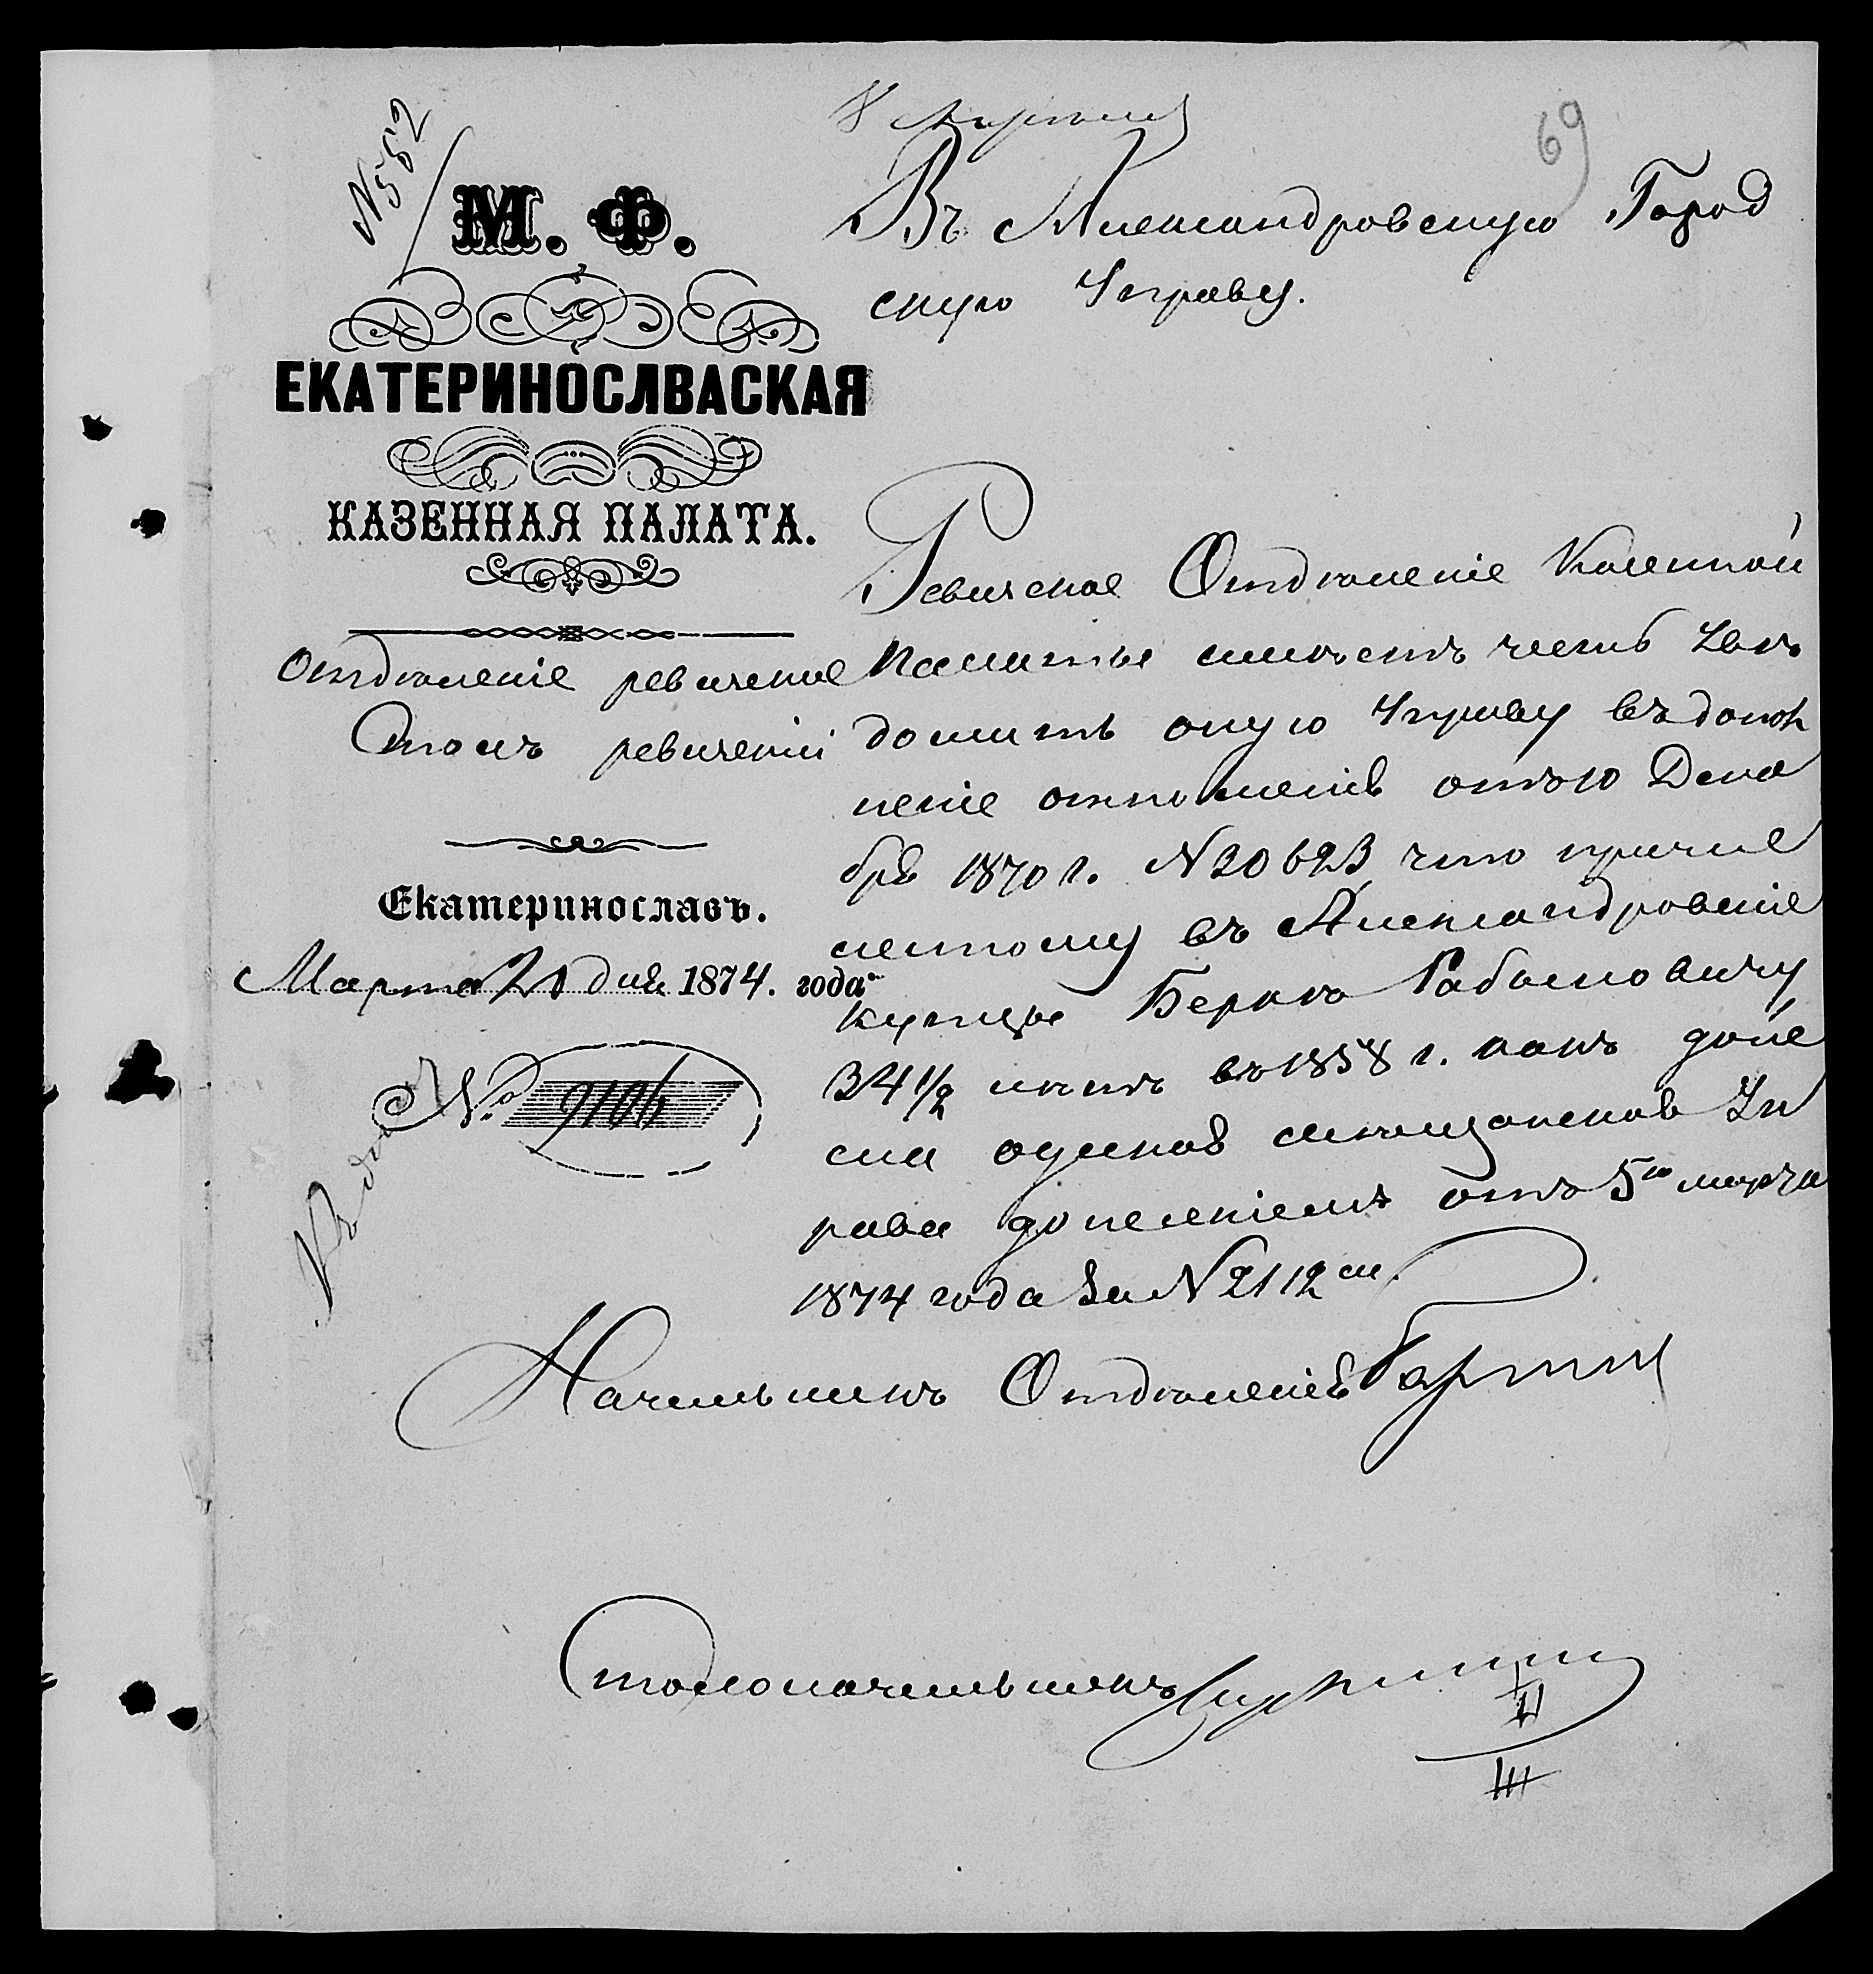 № 582
69
М. Ф.
ЕКАТЕРИНОСЛВАСКАЯ
КАЗЕННАЯ ПАЛАТА.
Отдѣленіе ревизское
Столъ ревизскій
Екатеринославъ.
Марта 20 дня 1874. года
№ 2106
Въ Александровскую Город
скую Управу.
Ревизское Отдѣленіе Казенной
Палаты имѣетъ честь Увѣ
домить оную Управу въ допол
неніе отношенія отъ 10 Дека
бря 1870 г. № 20623 что причис
ленному въ Александровскіе
купцы Берко Рабиновичу
34 1/2 лѣтъ въ 1858 г. какъ доне
сла одесская мѣщанская Уп
рава донесеніемъ отъ 5го марта
1874 года за № 2112 м.
Начальникъ Отдѣленія
Столоначальникъ
II
III